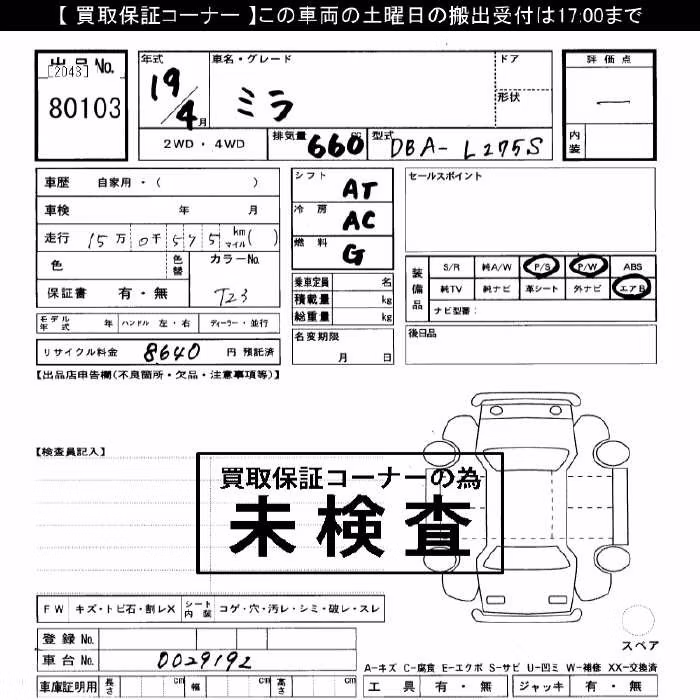 【 買取保証コーナー 】この車両の土曜日の搬出受付は17:00まで
出品No.
[2043]
80103
年式
19/4月
車名・グレード
ミラ
ドア
形状
評価点
—
内装
2WD・4WD
排気量 660 cc
型式 DBA-L275S
車歴 自家用・( )
車検 年 月
走行 15万0千575 km マイル( )
色
色替
カラーNo.
T23
保証書 有・無
モデル年式 年 ハンドル 左・右 ディーラー・並行
リサイクル料金 8640 円 預託済
シフト AT
冷房 AC
燃料 G
乗車定員 名
積載量 kg
総重量 kg
名変期限
月 日
セールスポイント
装備品
S/R 純A/W P/S P/W ABS
純TV 純ナビ 革シート 外ナビ エアB
ナビ型番:
後日品
【出品店申告欄(不良箇所・欠品・注意事項等)】
【検査員記入】
買取保証コーナーの為
未検査
FW キズ・トビ石・割レX シート内装 コゲ・穴・汚レ・シミ・破レ・スレ
登録No.
車台No. 0029192
車庫証明用 長さ cm 幅 cm 高さ cm
スペア
A-キズ C-腐食 E-エクボ S-サビ U-凹ミ W-補修 XX-交換済
工具 有・無 ジャッキ 有・無